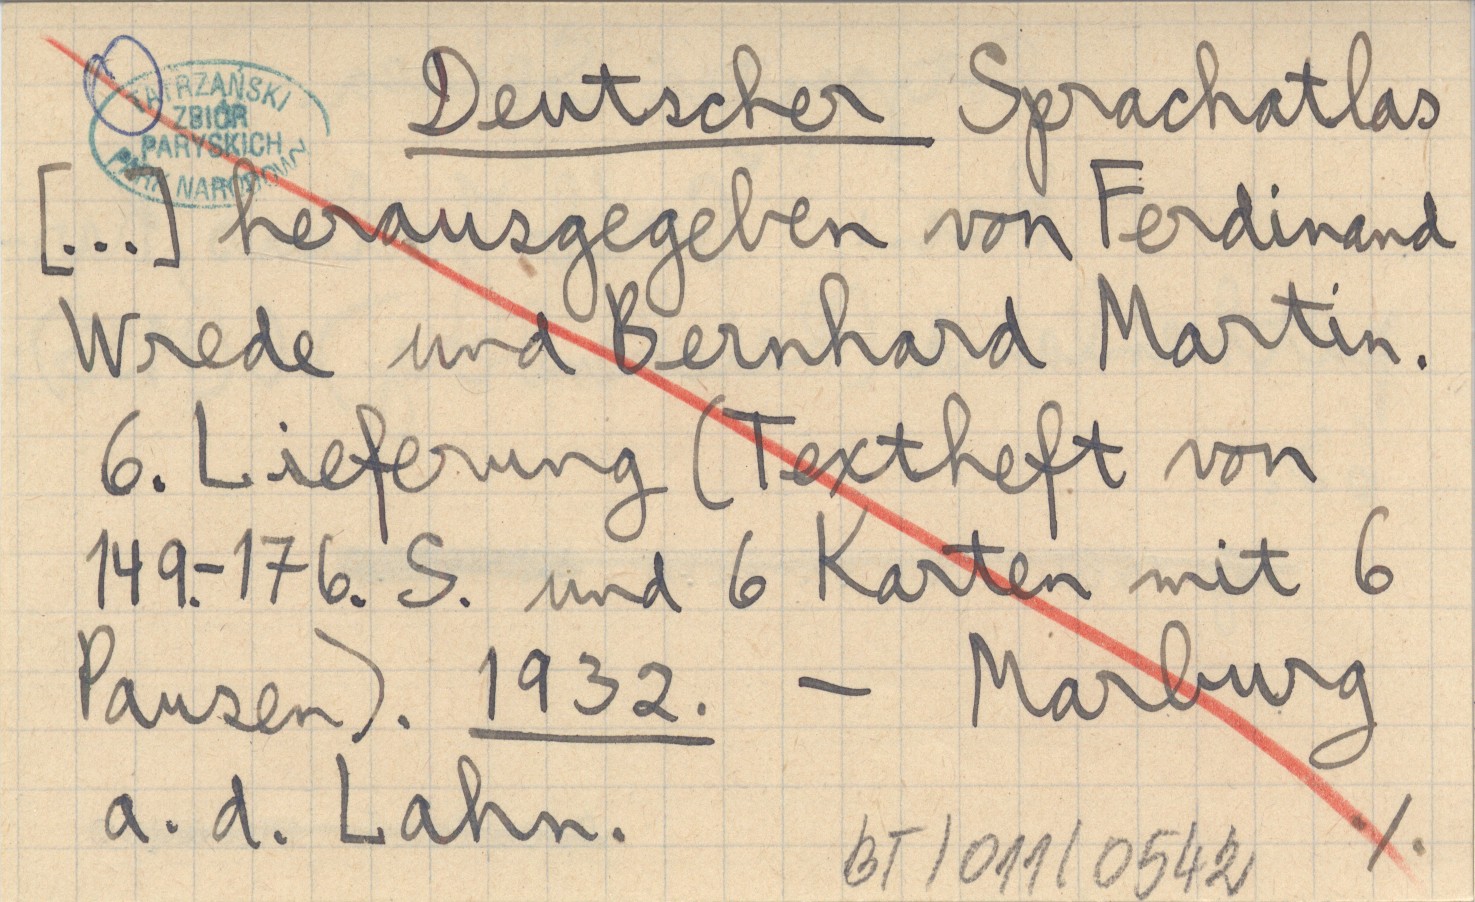 TATRZAŃSKI
ZBIÓR
PARYSKICH
PARK NARODOWY
Deutscher Sprachatlas
[...] herausgegeben von Ferdinand
Wrede und Bernhard Martin.
6. Lieferung (Textheft von
149.-176. S. und 6 Karten mit 6
Pausen). 1932. — Marburg
a. d. Lahn.
./.
BT/011/0542